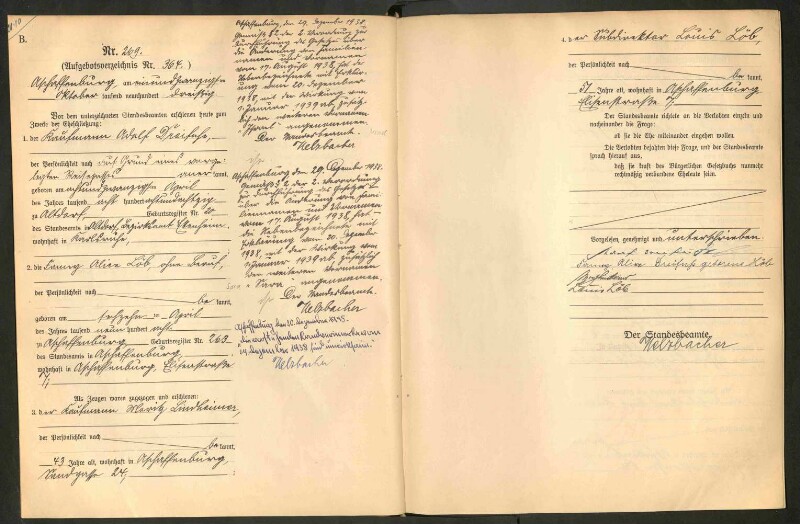 B.
Nr. 269.
(Aufgebotsverzeichnis Nr. 364.)
Aschaffenburg am einundzwanzigsten
Oktober tausend neunhundert dreißig
Vor dem unterzeichneten Standesbeamten erschienen heute zum
Zwecke der Eheschließung:
1. der Kaufmann Adolf Dreifuß,
der Persönlichkeit nach auf Grund eines vorge-
legten Reisepasses anerkannt,
geboren am achtundzwanzigsten April
des Jahres tausend acht hundert achtundachtzig
zu Altdorf, Geburtsregister Nr.
des Standesamts in Altdorf, Bezirksamt Ettenheim,
wohnhaft in Karlsruhe,
2. die Fanny Alice Löb, ohne Beruf,
der Persönlichkeit nach
be kannt,
geboren am April
des Jahres tausend neun hundert acht
zu Aschaffenburg, Geburtsregister Nr. 263
des Standesamts in Aschaffenburg,
wohnhaft in Aschaffenburg, Elisenstraße
7;
Als Zeugen waren zugezogen und erschienen:
3. der Kaufmann Moritz Lindheimer,
der Persönlichkeit nach
be kannt,
43 Jahre alt, wohnhaft in Aschaffenburg,
Sandgasse 24;
Aschaffenburg, den 29. Dezember 1938.
Gemäß § 2 der 2. Verordnung zur
Durchführung des Gesetzes über
die Änderung von Familien-
namen und Vornamen
vom 17. August 1938, hat der
Nebenbezeichnete mit Erklär-
ung vom 20. Dezember
1938, mit der Wirkung vom
1. Januar 1939 ab, zusätz-
lich den weiteren Vornamen
"Israel" angenommen.
Der Standesbeamte.
Welzbacher
Aschaffenburg, den 29. Dezember 1938.
Gemäß § 2 der 2. Verordnung
zur Durchführung des Gesetzes
über die Änderung von Fami-
liennamen und Vornamen
vom 17. August 1938, hat
die Nebenbezeichnete mit
Erklärung vom 20. Dezember
1938, mit der Wirkung vom
1. Januar 1939 ab, zusätzlich
den weiteren Vornamen
Sara angenommen.
Der Standesbeamte.
Welzbacher
Aschaffenburg, den 10. Dezember 1945.
Die vorstehenden Randvermerke vom
29. Dezember 1938 sind unwirksam.
Welzbacher
4. der Subdirektor Louis Löb,
der Persönlichkeit nach
be kannt,
51 Jahre alt, wohnhaft in Aschaffenburg
Elisenstraße 7.
Der Standesbeamte richtete an die Verlobten einzeln und
nacheinander die Frage:
ob sie die Ehe miteinander eingehen wollen.
Die Verlobten bejahten diese Frage, und der Standesbeamte
sprach hierauf aus,
daß sie kraft des Bürgerlichen Gesetzbuchs nunmehr
rechtmäßig verbundene Eheleute seien.
Vorgelesen, genehmigt und unterschrieben
Adolf Dreifuß
Fanny Alice Dreifuß geborene Löb
Louis Löb
Der Standesbeamte.
Welzbacher